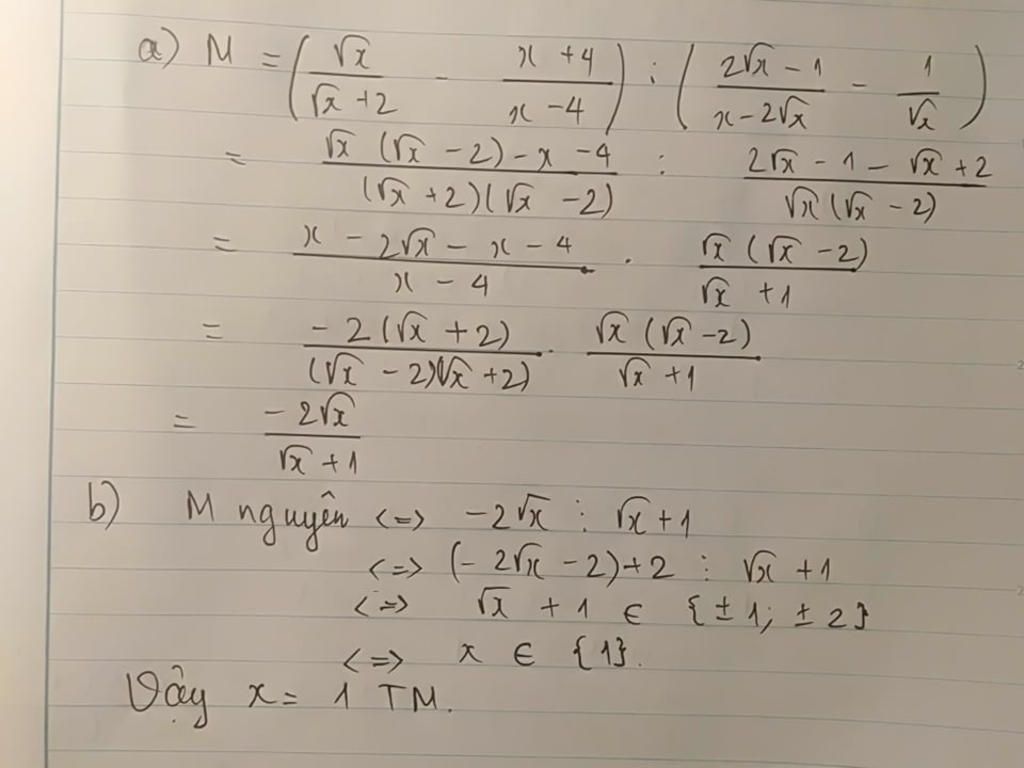 a) M = (√x / (√x + 2) - (x + 4) / (x - 4)) : ((2√x - 1) / (x - 2√x) - 1 / √x)
= (√x (√x - 2) - x - 4) / ((√x + 2)(√x - 2)) : (2√x - 1 - √x + 2) / (√x (√x - 2))
= (x - 2√x - x - 4) / (x - 4) . (√x (√x - 2)) / (√x + 1)
= (-2 (√x + 2)) / ((√x - 2)(√x + 2)) . (√x (√x - 2)) / (√x + 1)
= (-2√x) / (√x + 1)
b) M nguyên <=> -2√x ⋮ √x + 1
<=> (-2√x - 2) + 2 ⋮ √x + 1
<=> √x + 1 ∈ {±1; ±2}
<=> x ∈ {1}.
Vậy x = 1 TM.